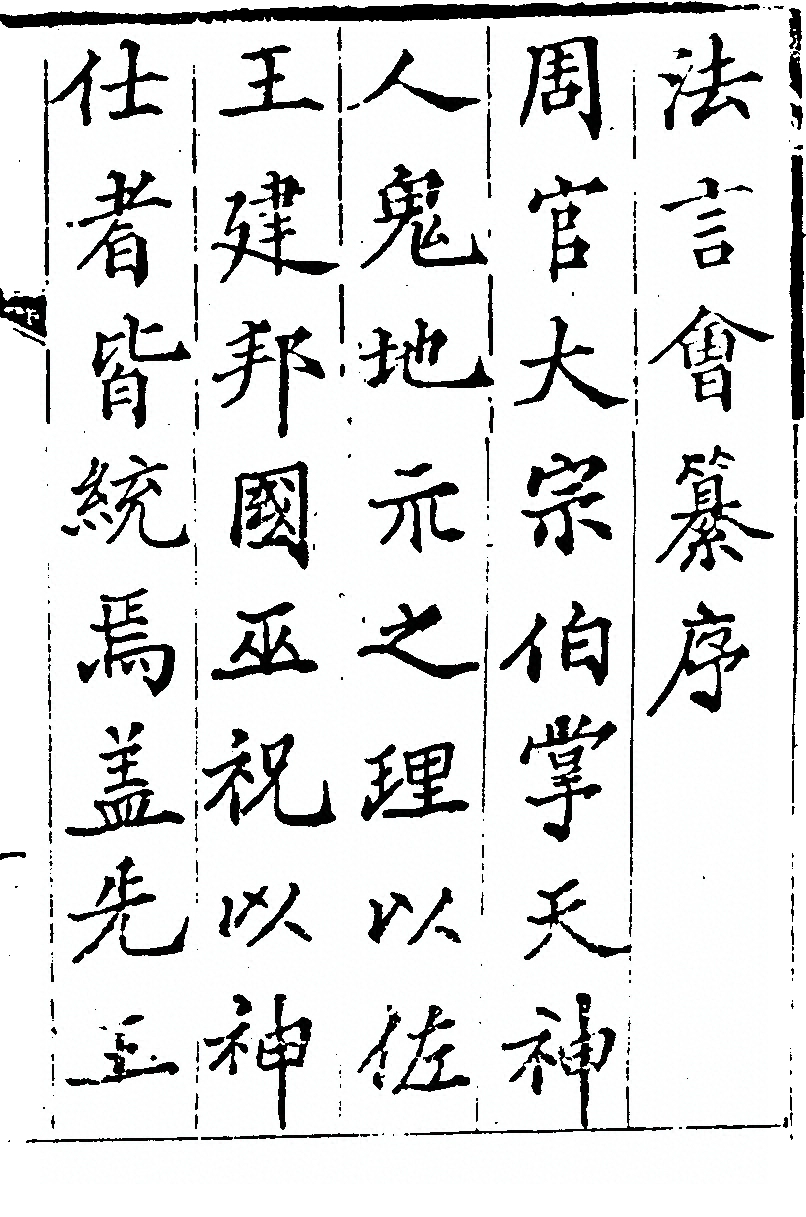 法言會纂序
周官大宗伯掌天神
人鬼地示之理以佐
王建邦國巫祝以神
仕者皆統焉盖先王